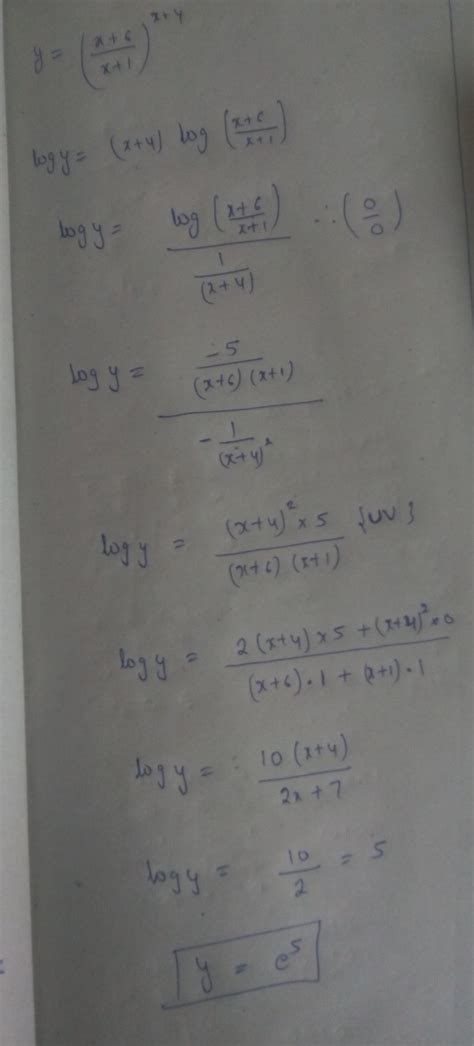 y = ((x+6)/(x+1))^(x+4)
log y = (x+4) log ((x+6)/(x+1))
log y = log ((x+6)/(x+1)) / (1/(x+4)) ∴ (0/0)
log y = (-5/((x+6)(x+1))) / (-1/(x+4)²)
log y = ((x+4)² × 5) / ((x+6)(x+1)) {UV}
log y = (2(x+4) × 5 + (x+4)² × 0) / ((x+6)·1 + (x+1)·1)
log y = 10(x+4) / (2x+7)
log y = 10/2 = 5
y = e⁵